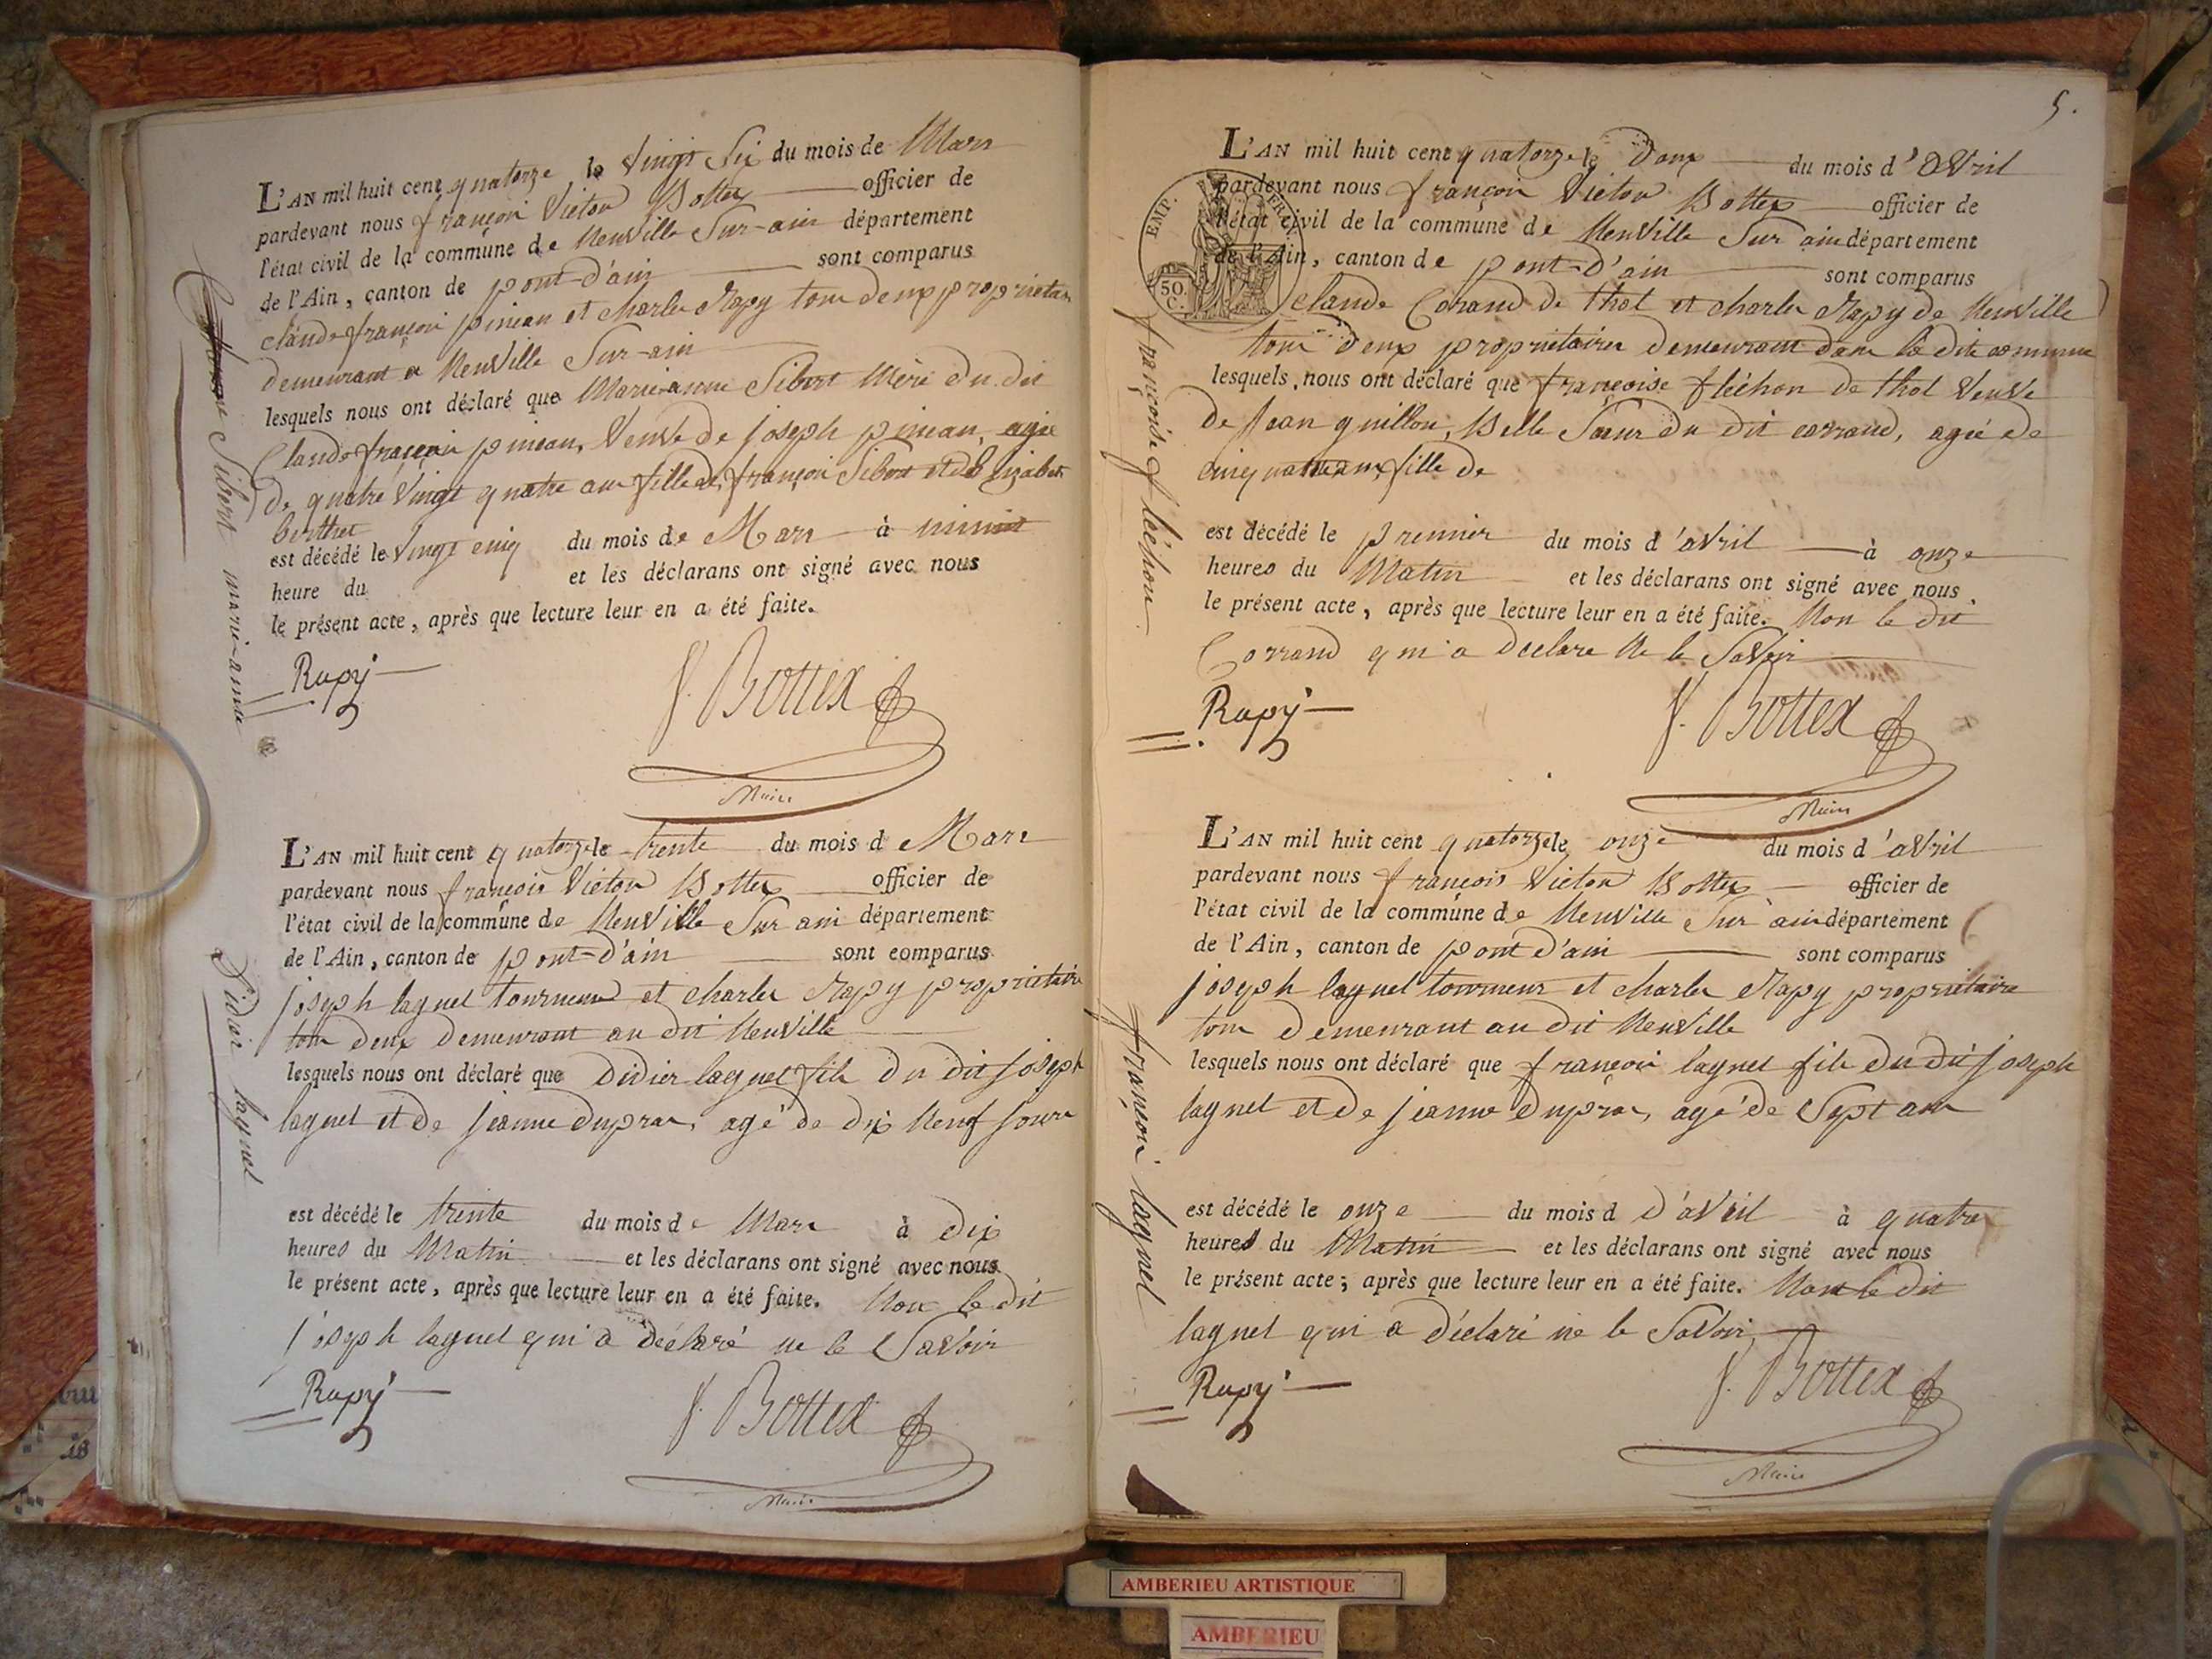 L'AN mil huit cent quatorze le vingt six du mois de Mars
pardevant nous françois Victor Bottex officier de
l'état civil de la commune de Neuville Sur-ain département
de l'Ain, canton de pont-d'ain sont comparus
claude françois pinian et charles Rapy tous deux propriétaires
demeurant a Neuville Sur-ain
lesquels nous ont déclaré que Marie anne Sibert Mère du dit
Claude françois pinian, Veuve de joseph pinian, agée
de quatre Vingt quatre ans fille de françois Sibert et d'Elizabet
berthet
est décédé le Vingt cinq du mois de Mars à minuit
heure du et les déclarans ont signé avec nous
le présent acte, après que lecture leur en a été faite.
Rapy
f. Bottex
Maire
Sibert marie-anne
L'AN mil huit cent quatorze le trente du mois de Mars
pardevant nous françois Victor Bottex officier de
l'état civil de la commune de Neuville Sur ain département
de l'Ain, canton de pont-d'ain sont comparus
joseph lagnel tourneur et charles Rapy propriétaire
tous deux demeurant au dit Neuville
lesquels nous ont déclaré que Didier lagnel fils du dit joseph
lagnel et de jeanne dupras, agé de dix Neuf jours
est décédé le trente du mois de Mars à dix
heures du Matin et les déclarans ont signé avec nous
le présent acte, après que lecture leur en a été faite. Non le dit
joseph lagnel qui a déclaré ne le Savoir
Rapy
f. Bottex
Maire
Didier lagnel
5.
L'AN mil huit cent quatorze le Deux du mois d'avril
pardevant nous françois Victor Bottex officier de
l'état civil de la commune de Neuville Sur ain département
de l'Ain, canton de pont-d'ain sont comparus
EMP. FRAN.
50.
C.
claude Corand de thol et charles Rapy de Neuville
tous deux propriétaires demeurant dans la dite commune
lesquels nous ont déclaré que françoise fléchon de thol Veuve
de Jean guillon, Belle Sœur du dit corrand, agée de
cinquante ans, fille de
est décédé le premier du mois d'avril à onze
heures du Matin et les déclarans ont signé avec nous
le présent acte, après que lecture leur en a été faite. Non le dit
Corrand qui a declare Ne le Savoir
Rapy
f. Bottex
Maire
françoise fléchon
L'AN mil huit cent quatorze le onze du mois d'avril
pardevant nous françois Victor Bottex officier de
l'état civil de la commune de Neuville Sur ain département
de l'Ain, canton de pont d'ain sont comparus
joseph lagnel tourneur et charles Rapy propriétaire
tous demeurant au dit Neuville
lesquels nous ont déclaré que françois lagnel fils du dit joseph
lagnel et de jeanne dupras, agé de Sept ans
est décédé le onze du mois d d'avril à quatre
heures du Matin et les déclarans ont signé avec nous
le présent acte; après que lecture leur en a été faite. Non le dit
lagnel qui a déclaré ne le Savoir
Rapy
f. Bottex
Maire
françois lagnel
AMBERIEU ARTISTIQUE
AMBERIEU